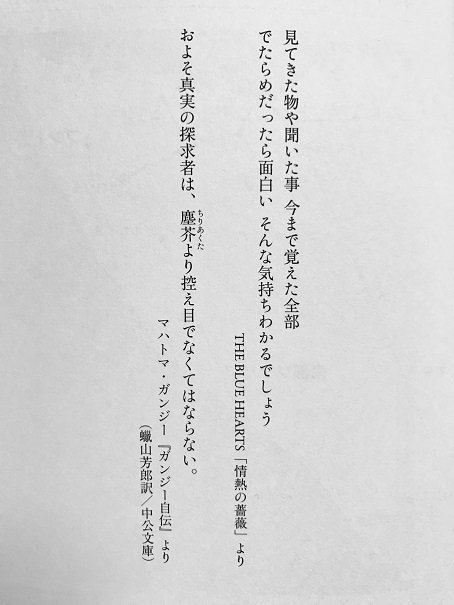 見てきた物や聞いた事 今まで覚えた全部
でたらめだったら面白い そんな気持ちわかるでしょう
THE BLUE HEARTS「情熱の薔薇」より
およそ真実の探求者は、塵芥より控え目でなくてはならない。
ちりあくた
マハトマ・ガンジー『ガンジー自伝』より
（蠟山芳郎訳／中公文庫）